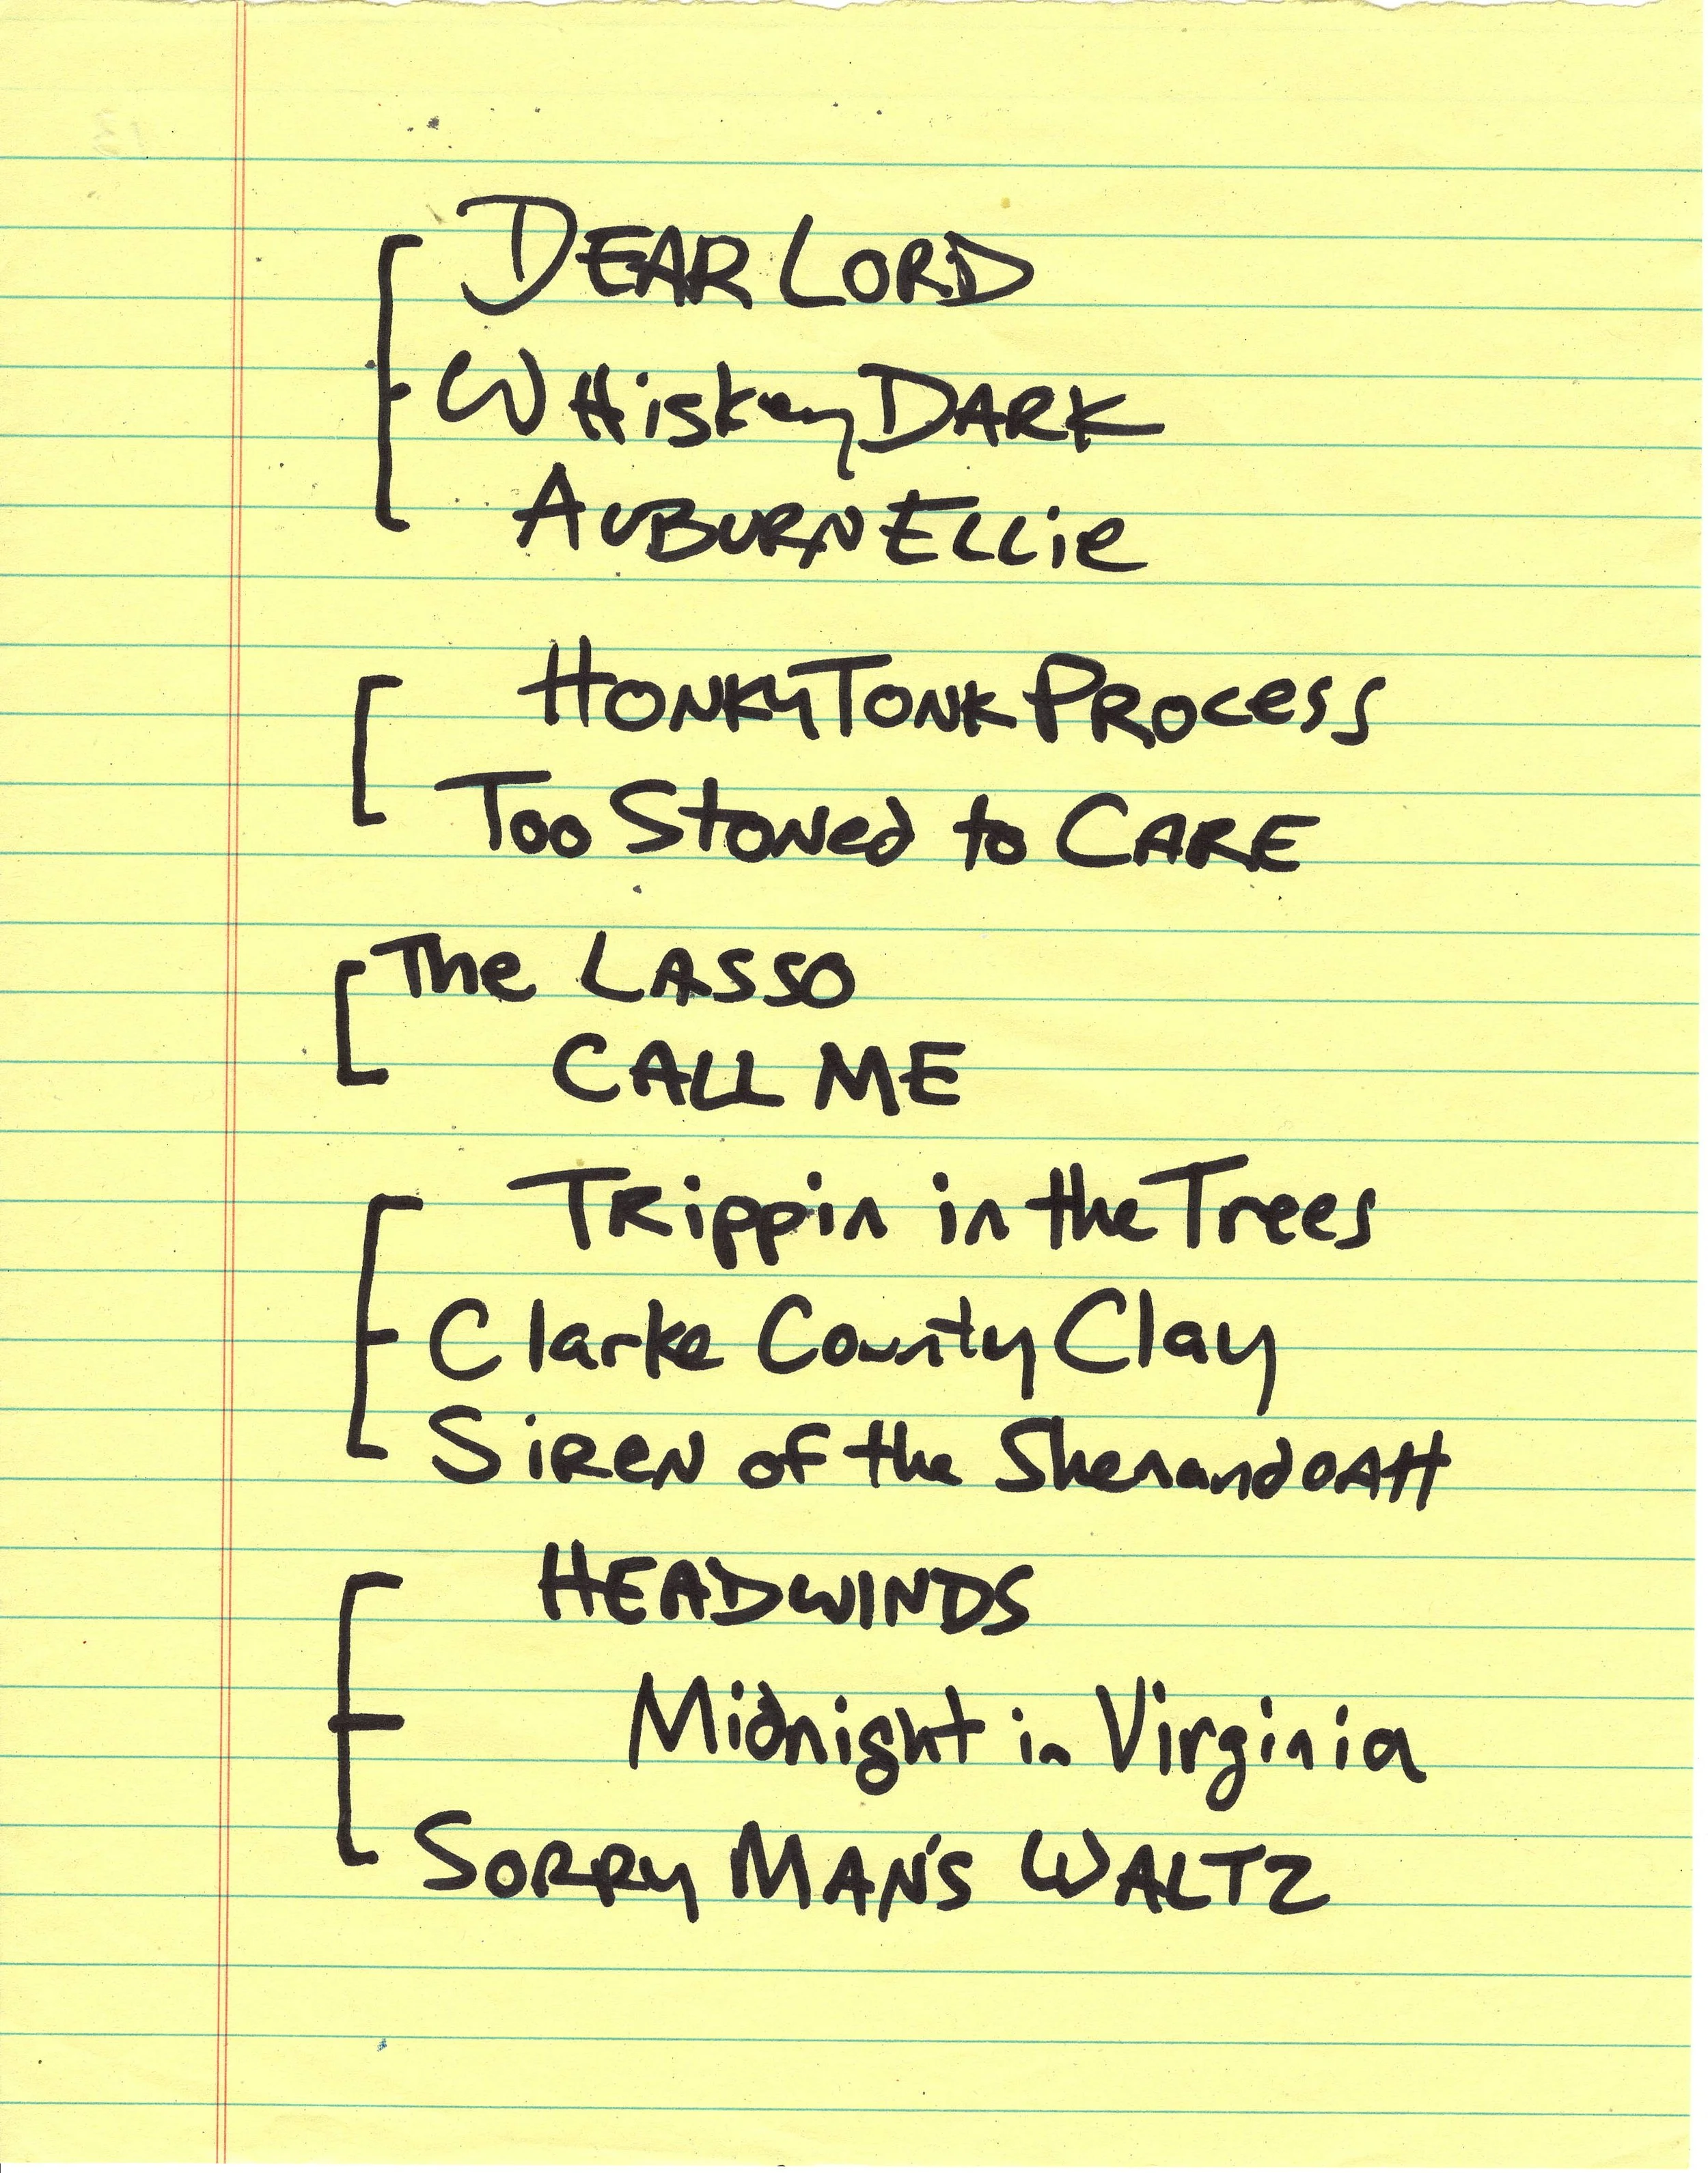 DEAR LORD
WHiskey DARK
AUBURN ELLie
HONKY TONK PROcess
Too StoNed to CARE
The LASSO
CALL ME
TRippin in the Trees
Clarke County Clay
SiReN of the ShenandOAH
HEADWINDS
Midnight in Virginia
SORRY MAN'S WALTZ